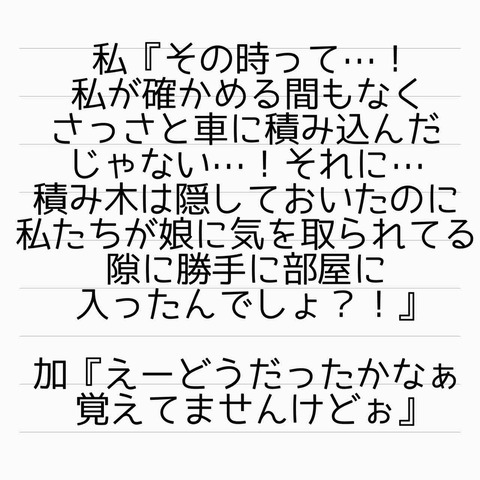 私『その時って…！
私が確かめる間もなく
さっさと車に積み込んだ
じゃない…！それに…
積み木は隠しておいたのに
私たちが娘に気を取られてる
隙に勝手に部屋に
入ったんでしょ？！』
加『えーどうだったかなぁ
覚えてませんけどぉ』